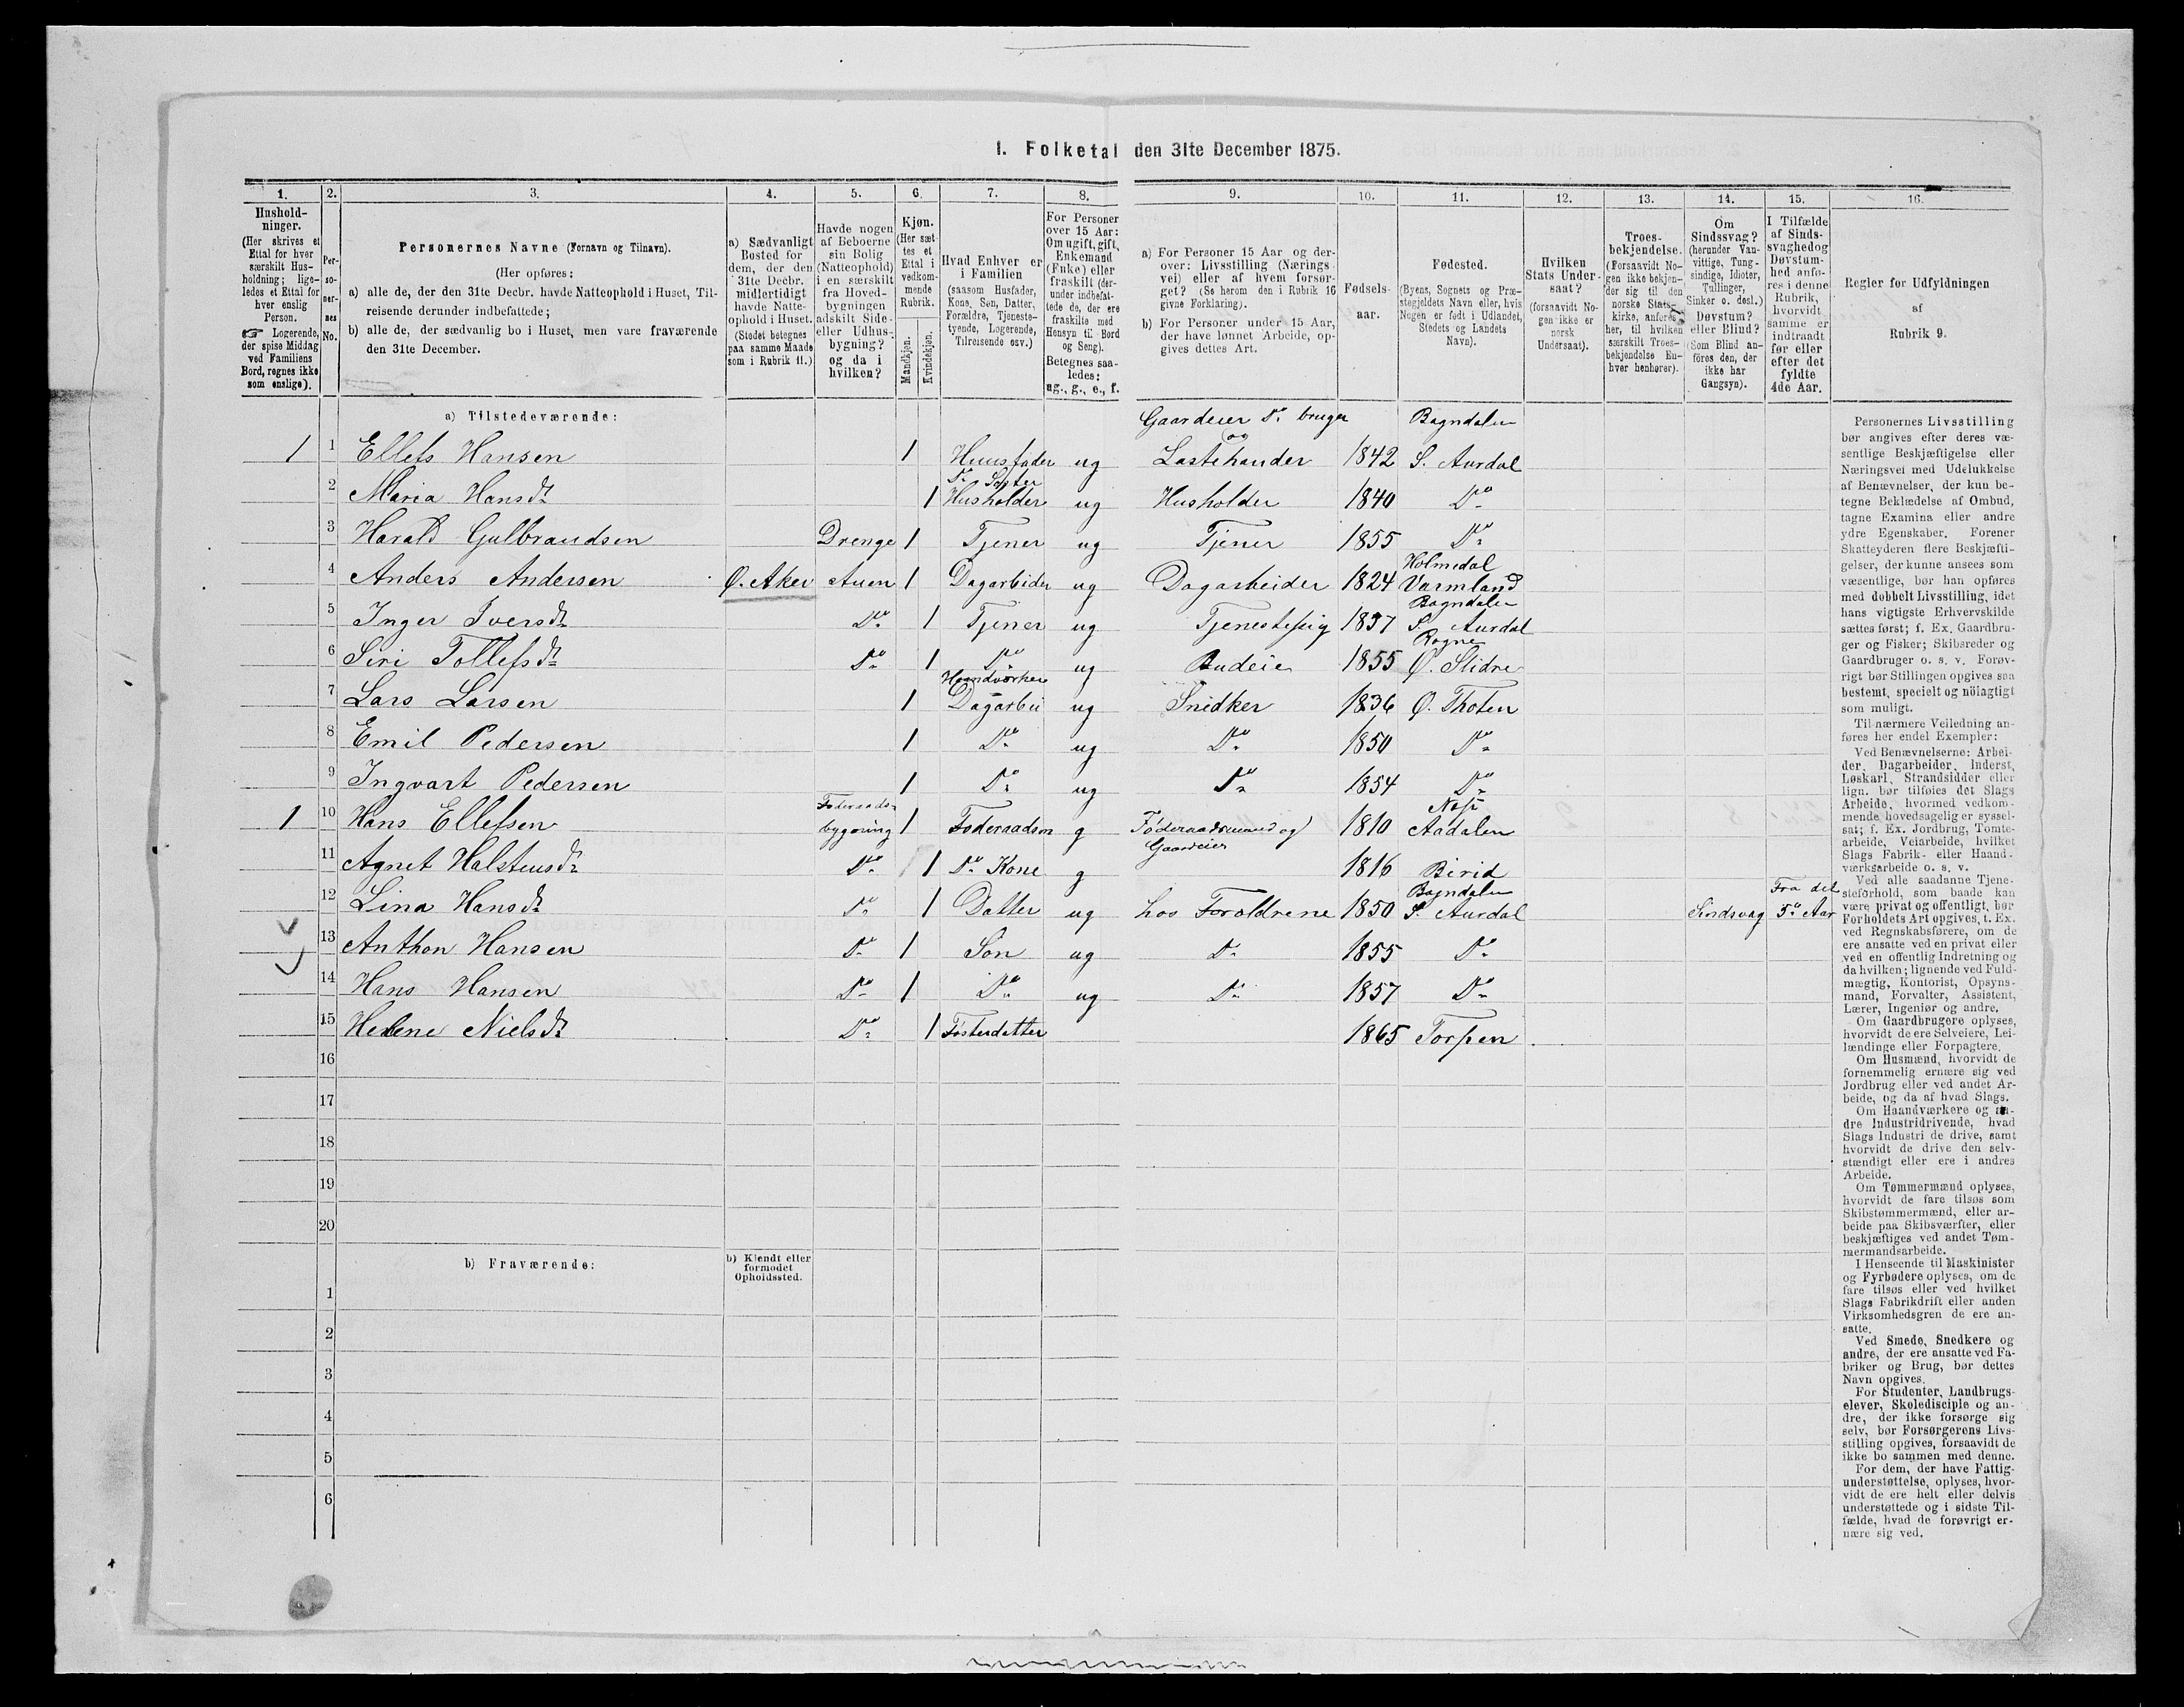 I. Folketal den 31te December 1875.
1. 2. 3. 4. 5. 6. 7. 8. 9. 10. 11. 12. 13. 14. 15. 16.
Hushold-
ninger.
(Her skrives et
Ettal for hver
særskilt Hus-
holdning; lige-
ledes et Ettal for
hver enslig
Person.
☞ Logerende,
der spise Middag
ved Familiens
Bord, regnes ikke
som enslige).
Per-
so-
ner-
nes
No.
Personernes Navne (Fornavn og Tilnavn).
(Her opføres:
a) alle de, der den 31te Decbr. havde Natteophold i Huset, Til-
reisende derunder indbefattede;
b) alle de, der sædvanlig bo i Huset, men vare fraværende
den 31te December.
a) Sædvanligt
Bosted for
dem, der den
31te Decbr.
midlertidigt
havde Natte-
ophold i Huset.
(Stedet betegnes
paa samme Maade
som i Rubrik 11.)
Havde nogen
af Beboerne
sin Bolig
(Natteophold)
i en særskilt
fra Hoved-
bygningen
adskilt Side-
eller Udhus-
bygning?
og da i
hvilken?
Kjøn.
(Her sæt-
tes et
Ettal i
vedkom-
mende
Rubrik.
Mandkjøn.
Kvindekjøn.
Hvad Enhver er
i Familien
(saasom Husfader,
Kone, Søn, Datter,
Forældre, Tjeneste-
tyende, Logerende,
Tilreisende osv.)
For Personer
over 15 Aar:
Om ugift, gift,
Enkemand
(Enke) eller
fraskilt (der-
under indbefat-
tede de, der ere
fraskilte med
Hensyn til Bord
og Seng).
Betegnes saa-
ledes:
ug., g., e., f.
a) For Personer 15 Aar og der-
over: Livsstilling (Nærings-
vei) eller af hvem forsør-
get? (Se herom den i Rubrik 16
givne Forklaring).
b) For Personer under 15 Aar,
der have lønnet Arbeide, op-
gives dettes Art.
Fødsels-
aar.
Fødested.
(Byens, Sognets og Præ-
stegjeldets Navn eller, hvis
Nogen er født i Udlandet,
Stedets og Landets
Navn).
Hvilken
Stats Under-
saat?
(forsaavidt No-
gen ikke er
norsk
Undersaat).
Troes-
bekjendelse.
(Forsaavidt No-
gen ikke bekjen-
der sig til den
norske Stats-
kirke, anføres
her, til hvilken
særskilt Troes-
bekjendelse En-
hver henhører).
Om
Sindssvag?
(herunder Van-
vittige, Tung-
sindige, Idioter,
Tullinger,
Sinker o. desl.)
Døvstum?
eller Blind?
(Som Blind an-
føres den, der
ikke har
Gangsyn).
I Tilfælde
af Sinds-
svaghedog
Døvstum-
hed anfø-
res i denne
Rubrik,
hvorvidt
samme er
indtraadt
før eller
efter det
fyldte
4de Aar.
Regler for Udfyldningen
af
Rubrik 9.
a) Tilstedeværende:
Gaardeier Do. bruger Bagndalen
1 1 Ellefs Hansen 1 Huusfader ug og Lastehander 1842 S. Aurdal
2 Maria Hansdt Do. Søster 1 Husholder ug Husholder 1840 Do
3 Harald Gulbrandsen Drenge 1 Tjener ug Tjener 1855 Do
4 Anders Andersen Ø. Aker Auen 1 Dagarbider ug Dagarbeider 1824 Holmedal Varmland
5 Inger Iversdt Do. 1 Tjener ug Tjenestepig 1837 Bagndalen S. Aurdal
6 Siri Tollefsdt Do 1 Do ug Budeie 1855 Rogne Ø. Slidre
7 Lars Larsen 1 Haandværker Dagarbei ug Snidker 1836 Ø. Thoten
8 Emil Pedersen 1 Do ug Do 1850 Do
9 Ingvart Pedersen 1 Do ug Do 1854 Do
1 10 Hans Ellefsen Føderaads- bygning 1 Føderaadsm g Føderaadsmand og Gaardeier 1810 Næs Aadalen
11 Agnet Halstensdt Do 1 Do Kone g 1816 Birid
12 Lina Hansdt Do 1 Datter ug hos Forældrene 1850 Bagndalen S. Aurdal Sindsvag Fra det 5te Aar
13 Anthon Hansen Do 1 Søn ug Do 1855 Do
14 Hans Hansen Do 1 Do ug Do 1857 Do
15 Helene Nielsdt Do 1 Fosterdatter 1865 Torpen
16
17
18
19
20
b) Fraværende:
b) Kjendt eller
formodet
Opholdssted.
1
2
3
4
5
6
Personernes Livsstilling
bør angives efter deres væ-
sentlige Beskjæftigelse eller
Næringsvei med Udelukkelse
af Benævnelser, der kun be-
tegne Beklædelse af Ombud,
tagne Examina eller andre
ydre Egenskaber. Forener
Skatteyderen flere Beskjæfti-
gelser, der kunne ansees som
væsentlige, bør han opføres
med dobbelt Livsstilling, idet
hans vigtigste Erhvervskilde
sættes først; f. Ex. Gaardbru-
ger og Fisker; Skibsreder og
Gaardbruger o. s. v. Forøv-
rigt bør Stillingen opgives saa
bestemt, specielt og nöiagtigt
som muligt.
Til nærmere Veiledning an-
føres her endel Exempler:
Ved Benævnelserne: Arbei-
der, Dagarbeider, Inderst,
Løskarl, Strandsidder eller
lign. bør tilføies det Slags
Arbeide, hvormed vedkom-
mende hovedsagelig er syssel-
sat; f. Ex. Jordbrug, Tomte-
arbeide, Veiarbeide, hvilket
Slags Fabrik- eller Haand-
værksarbeide o. s. v.
Ved alle saadanne Tjene-
steforhold, som baade kan
være privat og offentligt, bør
Forholdets Art opgives, t. Ex.
ved Regnskabsførere, om de
ere ansatte ved en privat eller
ved en offentlig Indretning og
da hvilken; lignende ved Fuld-
mægtig, Kontorist, Opsyns-
mand, Forvalter, Assistent,
Lærer, Ingeniør og andre.
Om Gaardbrugere oplyses,
hvorvidt de ere Selveiere, Lei-
lændinge eller Forpagtere.
Om Husmænd, hvorvidt de
fornemmelig ernære sig ved
Jordbrug eller ved andet Ar-
beide, og da af hvad Slags.
Om Haandværkere og an-
dre Industridrivende, hvad
Slags Industri de drive, samt
hvorvidt de drive den selv-
stændigt eller ere i andres
Arbeide.
Om Tømmermænd oplyses,
hvorvidt de fare tilsøs som
Skibstømmermænd, eller ar-
beide paa Skibsværfter, eller
beskjæftiges ved andet Tøm-
mermandsarbeide.
I Henseende til Maskinister
og Fyrbødere oplyses, om de
fare tilsøs eller ved hvilket
Slags Fabrikdrift eller anden
Virksomhedsgren de ere an-
satte.
Ved Smede, Snedkere og
andre, der ere ansatte ved Fa-
briker og Brug, bør dettes
Navn opgives.
For Studenter, Landbrugs-
elever, Skoledisciple og an-
dre, der ikke forsørge sig
selv, bør Forsørgerens Livs-
stilling opgives, forsaavidt de
ikke bo sammen med denne.
For dem, der have Fattig-
understøttelse, oplyses, hvor-
vidt de ere helt eller delvis
understøttede og i sidste Til-
fælde, hvad de forøvrigt er-
nære sig ved.